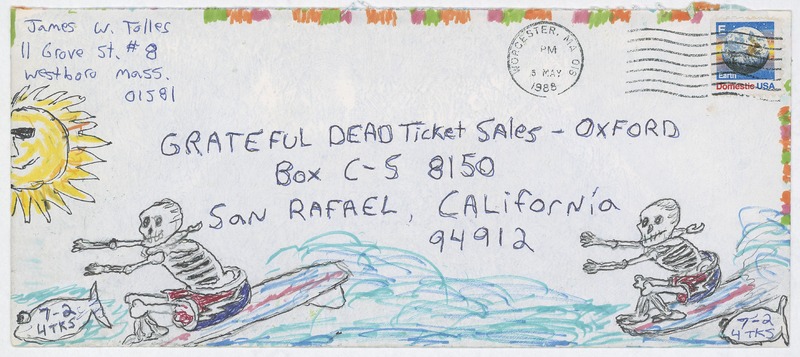 James W. Tolles
11 Grove St. # 8
Westboro Mass.
01581
WORCESTER, MA 016
PM
5 MAY
1988
E
Earth
Domestic USA
GRATEFUL DEAD Ticket SALES - OXFORD
Box C-S 8150
SAN RAFAEL, CALifornia
94912
7-2
4 TKS
7-2
4 TKS